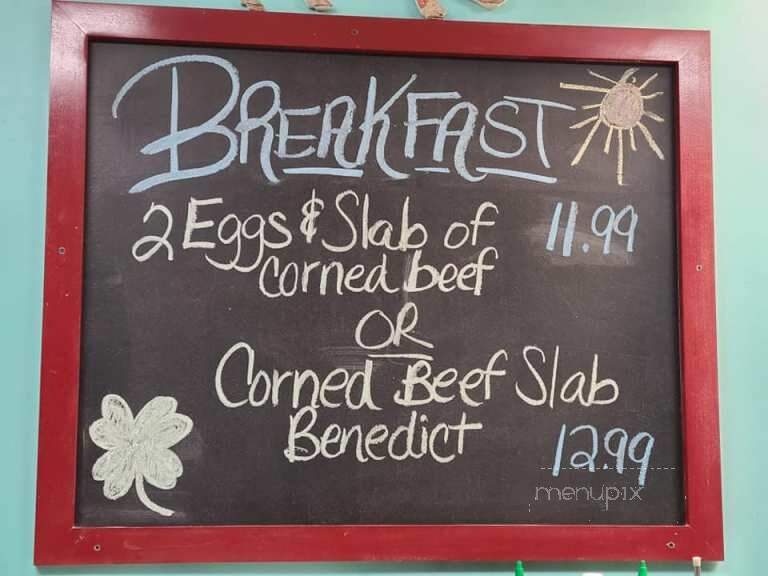 BREAKFAST
2 Eggs & Slab of 11.99
corned beef
OR
Corned Beef Slab
Benedict 12.99
menupix